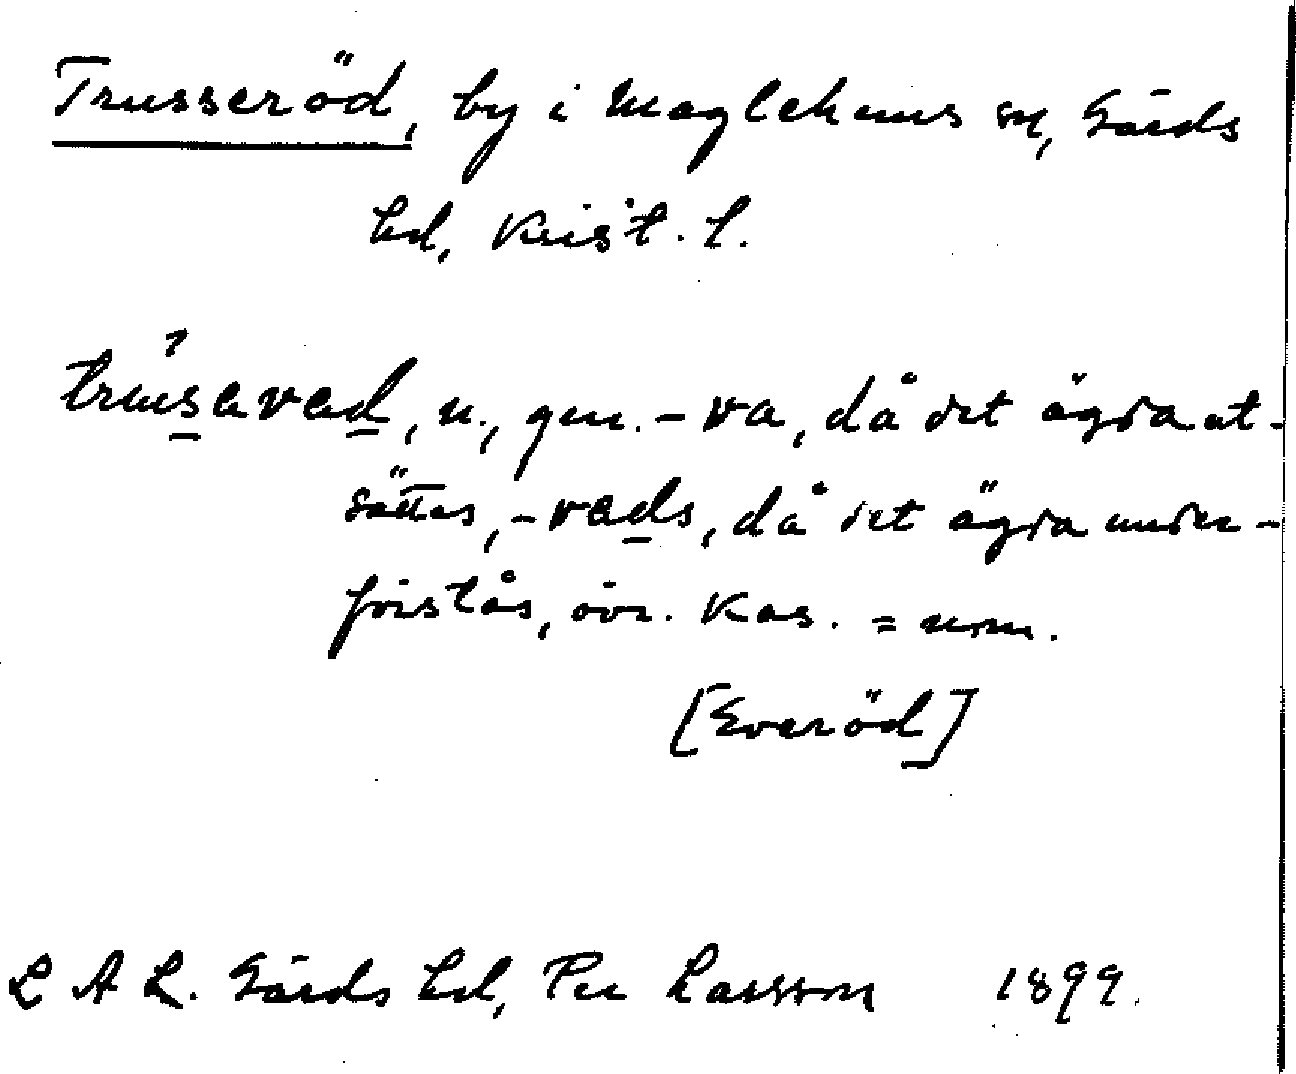 Trusseröd, by i Maglehems sn, Gärds
hd, Krist. l.
trusavad, n., gen. -va, då det ägda ut-
sättes, -vads, då det ägda under-
förstås, övr. kas. = nom.
[Everöd]
L A L. Gärds hd, Per Larsson 1899.